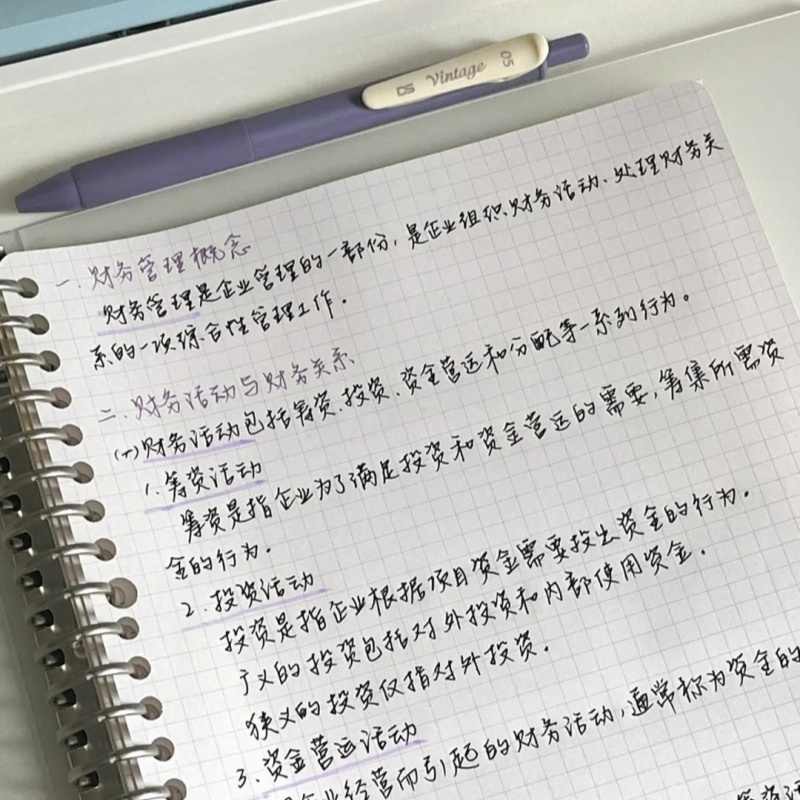 Vintage 05
一、财务管理概念
财务管理是企业管理的一部份，是企业组织财务活动、处理财务关
系的一项综合性管理工作。
二、财务活动与财务关系
(一)财务活动包括筹资、投资、资金营运和分配等一系列行为。
1、筹资活动
筹资是指企业为了满足投资和资金营运的需要，筹集所需资
金的行为。
2、投资活动
投资是指企业根据项目资金需要投出资金的行为。
广义的投资包括对外投资和内部使用资金。
狭义的投资仅指对外投资。
3、资金营运活动
企业经营而引起的财务活动，通常称为资金的